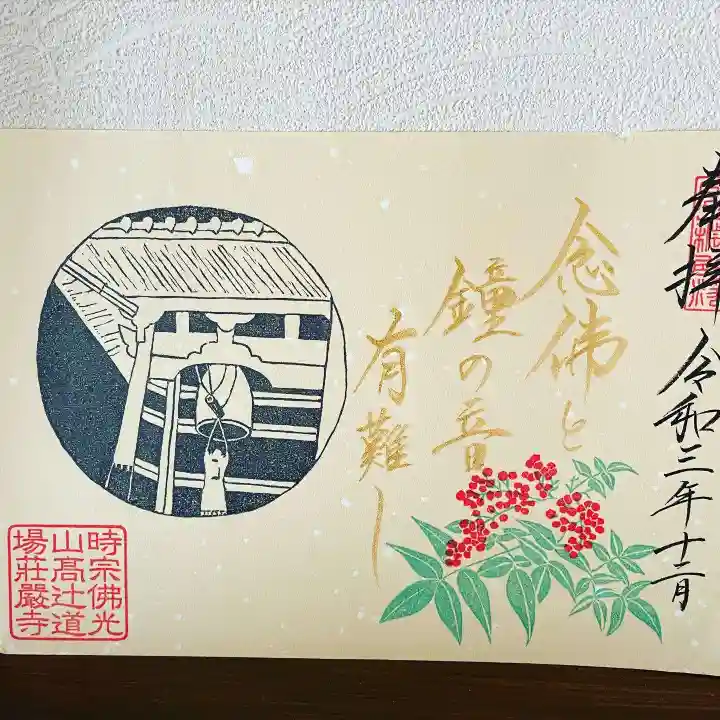 奉拝
令和三年十二月
念佛と
鐘の音
有難し
時宗佛光
山高辻道
場莊嚴寺